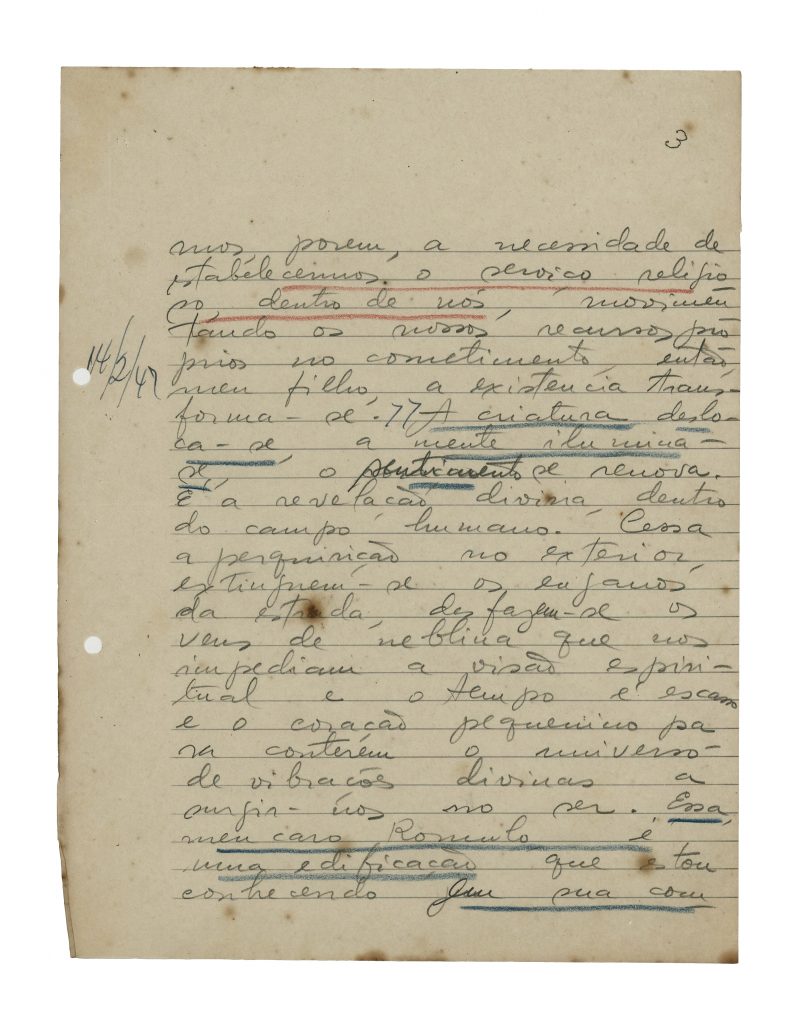 3
mos, porem, a necessidade de
estabelecermos o serviço religio
so, dentro de nós, movimen
tando os nossos recursos pro
prios no cometimento, então,
14/2/47
meu filho, a existencia trans-
forma-se. 77 A criatura deslo-
ca-se, a mente ilumina-
se, o sentimento se renova.
E' a revelação divina dentro
do campo humano. Cessa
a perquirição no exterior,
extinguem-se os enganos
da estrada, desfazem-se os
veus de neblina que nos
impediam a visão espiri-
tual e o tempo é escasso
e o coração pequenino pa
ra conterem o universo
de vibrações divinas a
surgir-nos no ser. Essa,
meu caro Romulo é
uma edificação que estou
conhecendo em sua com